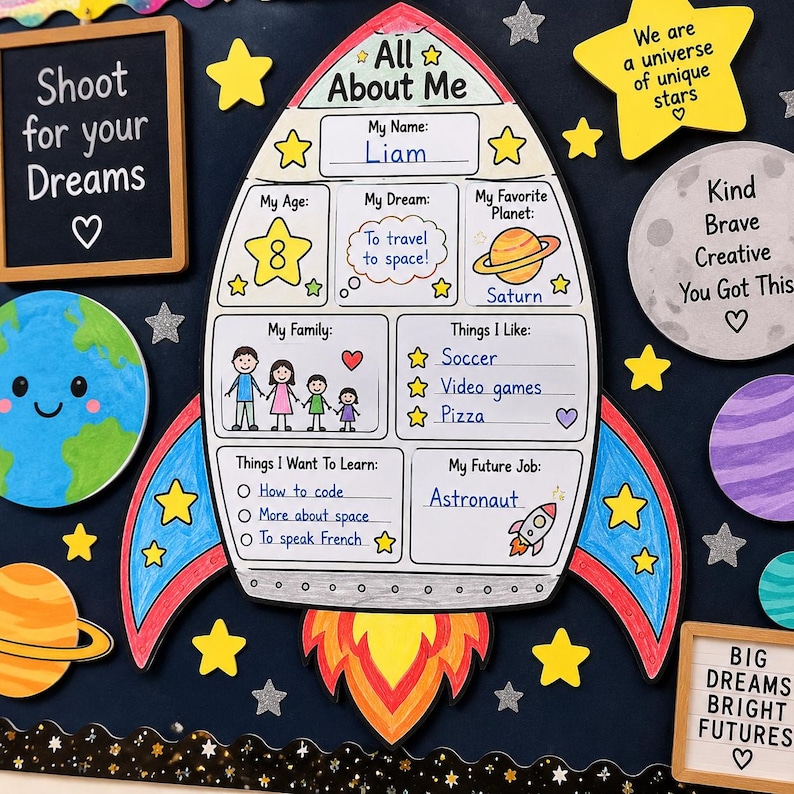 Shoot
for your
Dreams
All
About Me
My Name:
Liam
My Age:
8
My Dream:
To travel
to space!
My Favorite
Planet:
Saturn
My Family:
Things I Like:
Soccer
Video games
Pizza
Things I Want To Learn:
How to code
More about space
To speak French
My Future Job:
Astronaut
We are
a universe
of unique
stars
Kind
Brave
Creative
You Got This
BIG
DREAMS
BRIGHT
FUTURES